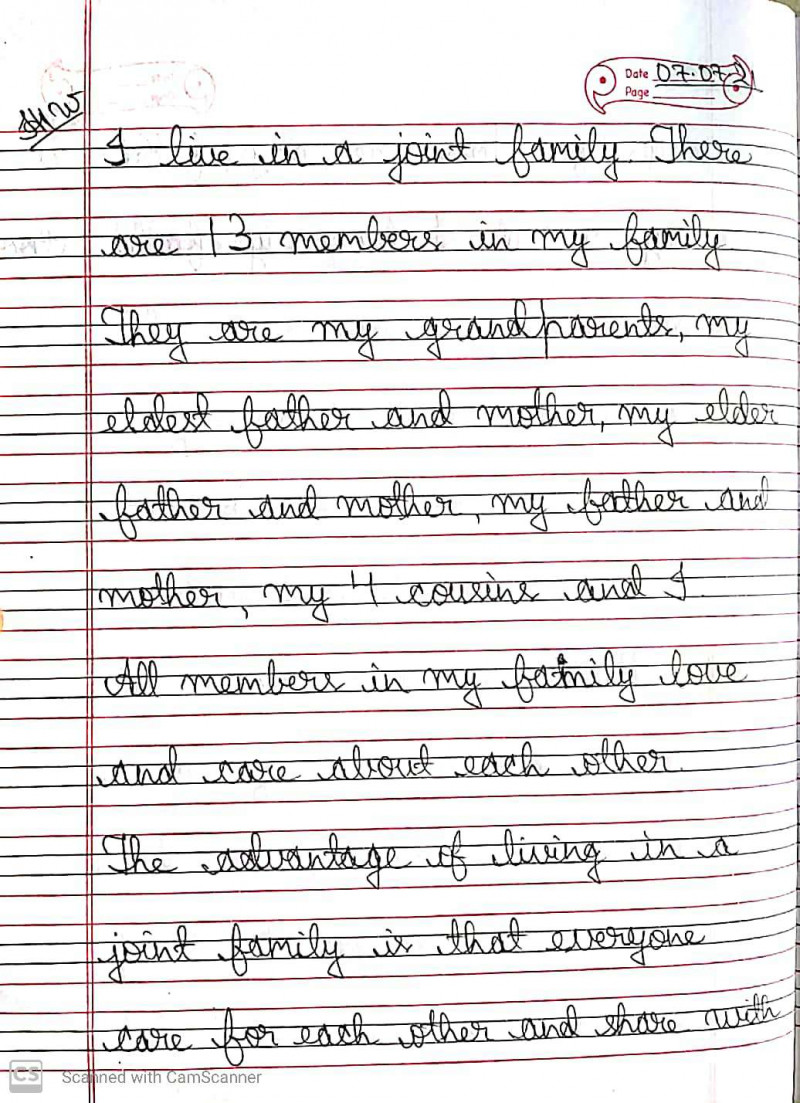 Date 07.07.2
Page
H.W
I live in a joint family. There
are 13 members in my family
They are my grandparents, my
eldest father and mother, my elder
father and mother, my father and
mother, my 4 cousins and I.
All members in my family love
and care about each other.
The advantage of living in a
joint family is that everyone
care for each other and share with
CS Scanned with CamScanner